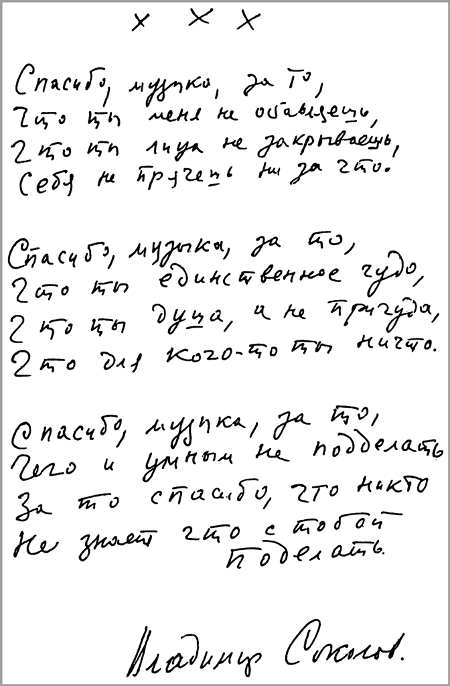 х х х
Спасибо, музыка, за то,
Что ты меня не оставляешь,
Что ты лица не закрываешь,
Себя не прячешь ни за что.
Спасибо, музыка, за то,
Что ты единственное чудо,
Что ты душа, а не причуда,
Что для кого-то ты ничто.
Спасибо, музыка, за то,
Чего и умным не подделать
За то спасибо, что никто
Не знает что с тобой
поделать.
Владимир Соколов.